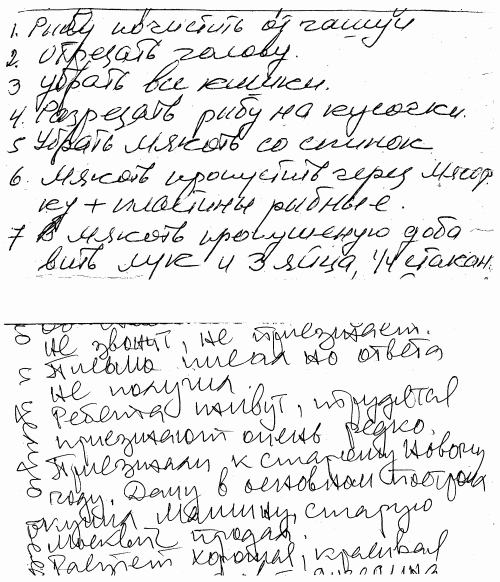 1. Рыбу почистить от чешуи
2. Отрезать голову.
3 Убрать все кишки.
4. Разрезать рыбу на кусочки.
5 Убрать мякоть со спинок
6. Мякоть пропустить через мясор
ку + пластины рыбные.
7 В мякоть пропушеную доба
вить лук и 3 яйца, 1/4 стакан.
не звонит, не приезжает.
Письмо писал но ответа
не получил.
Ребята живут, трудятся
приезжают очень редко.
Приезжали к старому Новому
году. Дачу в основном построил
купил машину, старую
москвич продал.
Растет хорошая, красивая